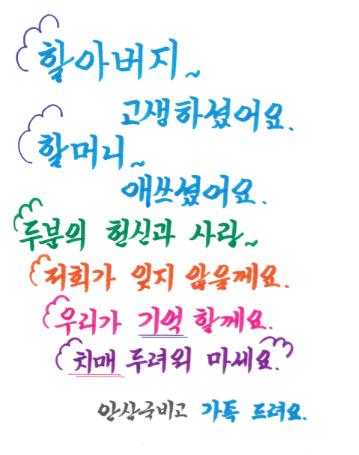 할아버지~
고생하셨어요.
할머니~
애쓰셨어요.
두분의 헌신과 사랑~
저희가 잊지 않을께요.
우리가 기억 할께요.
치매 두려워 마세요.
안삼국비고 가톡 드려요.